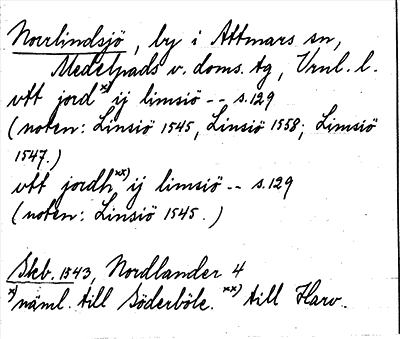 Norrlindsjö, by i Attmars sn,
Medelpads v. doms. tg, Vrnl. l.
vtt jord x) ij limsiö -- s.129
(noten: Linsiö 1545, Linsiö 1558; Limsiö
1547.)
vtt jordh xx) ij limsiö -- s.129
(noten: Linsiö 1545.)
Skb. 1543, Nordlander 4
x) näml. till Söderböle. xx) till Harv.